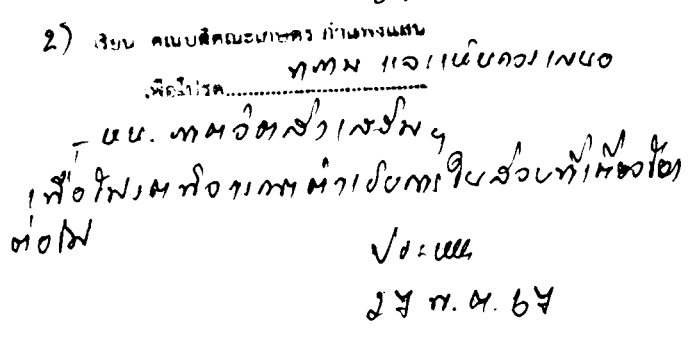 2) เรียน คณบดีคณะเกษตร กำแพงแสน
เพื่อโปรด.......ทราบ และเห็นควรเสนอ
- หน. ภาควิชาส่งเสริมฯ
เพื่อโปรดพิจารณาดำเนินการในส่วนที่เกี่ยวข้อง
ต่อไป
27 พ.ค. 67